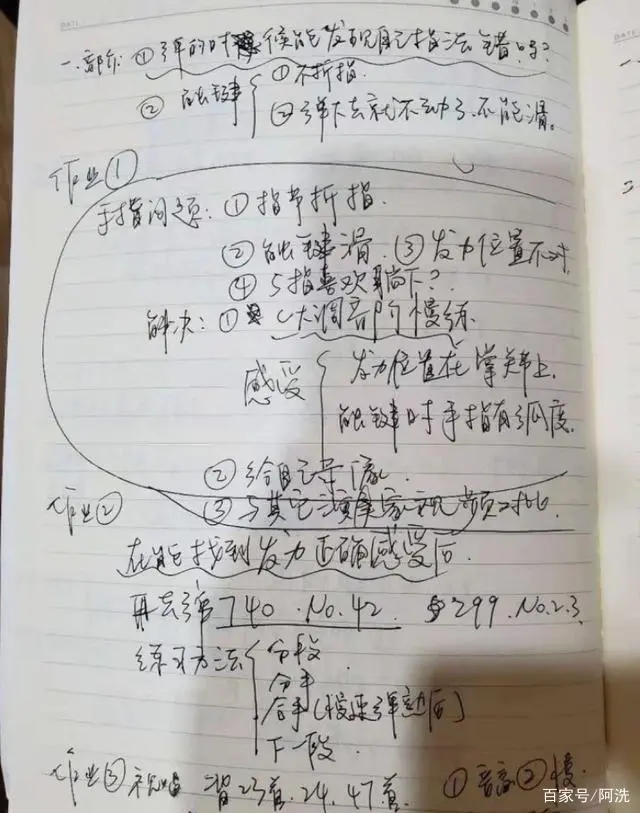 DATE
一.部分: ① 弹的时候能发现自己指法错吗?
② 触键 ① 不折指.
② 弹下去就不动了,不能滑。
作业①
手指问题: ① 指节折指.
② 触键滑. ③ 发力位置不对.
④ 5指喜欢躺下?
解决: ① C大调音阶慢练.
感受 发力位置在掌关节上.
触键时手指有弧度.
② 给自己录像.
作业② ③ 与其它演奏家视频对比
在能找到发力正确感受后.
再去弹 740.No.42. 299.No.2.3.
练习方法 分段
分手
合手(慢速弹熟后)
下一段.
作业③ 视唱 23首.24.47首. ① 音高 ② 慢.
百家号/阿洗